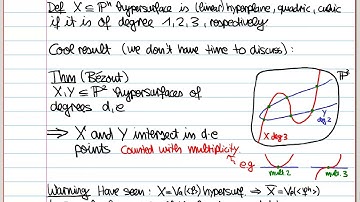 Def X ⊆ ℙⁿ hypersurface is (linear) hyperplane, quadric, cubic
if it is of degree 1, 2, 3, respectively
Cool result (we don't have time to discuss):
Thm (Bézout)
X, Y ⊆ ℙ² hypersurfaces of
degrees d, e
⇒ X and Y intersect in d·e
points counted with multiplicity
ℙ²
Y
deg 2
X deg 3
e.g
mult. 2
mult. 3
Warning Have seen: X = Va(<f>) hypersurf. ⇒ X̄ = Vp(<fʰ>)